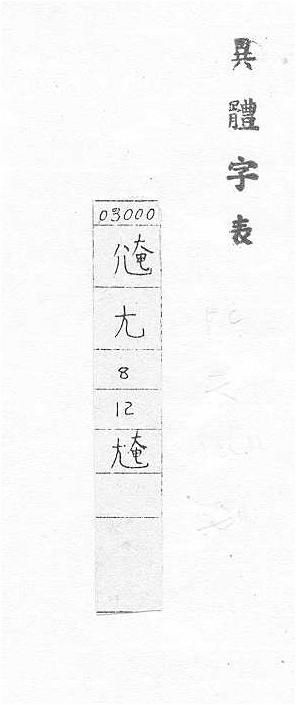 異體字表
03000
尢
8
12